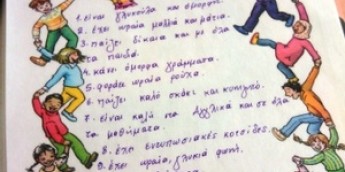 1. είναι γλυκούλα και όμορφη.
2. έχει ωραία μαλλιά και μάτια.
3. παίζει δίκαια και με όλα
τα παιδιά.
4. κάνει όμορφα γράμματα.
5. φοράει ωραία ρούχα.
6. παίζει καλό σκάκι και κυνηγητό.
7. είναι καλή στα Αγγλικά και σε όλα
τα μαθήματα.
8. έχει εντυπωσιακές κοτσίδες.
9. έχει ωραία, γλυκιά φωνή.